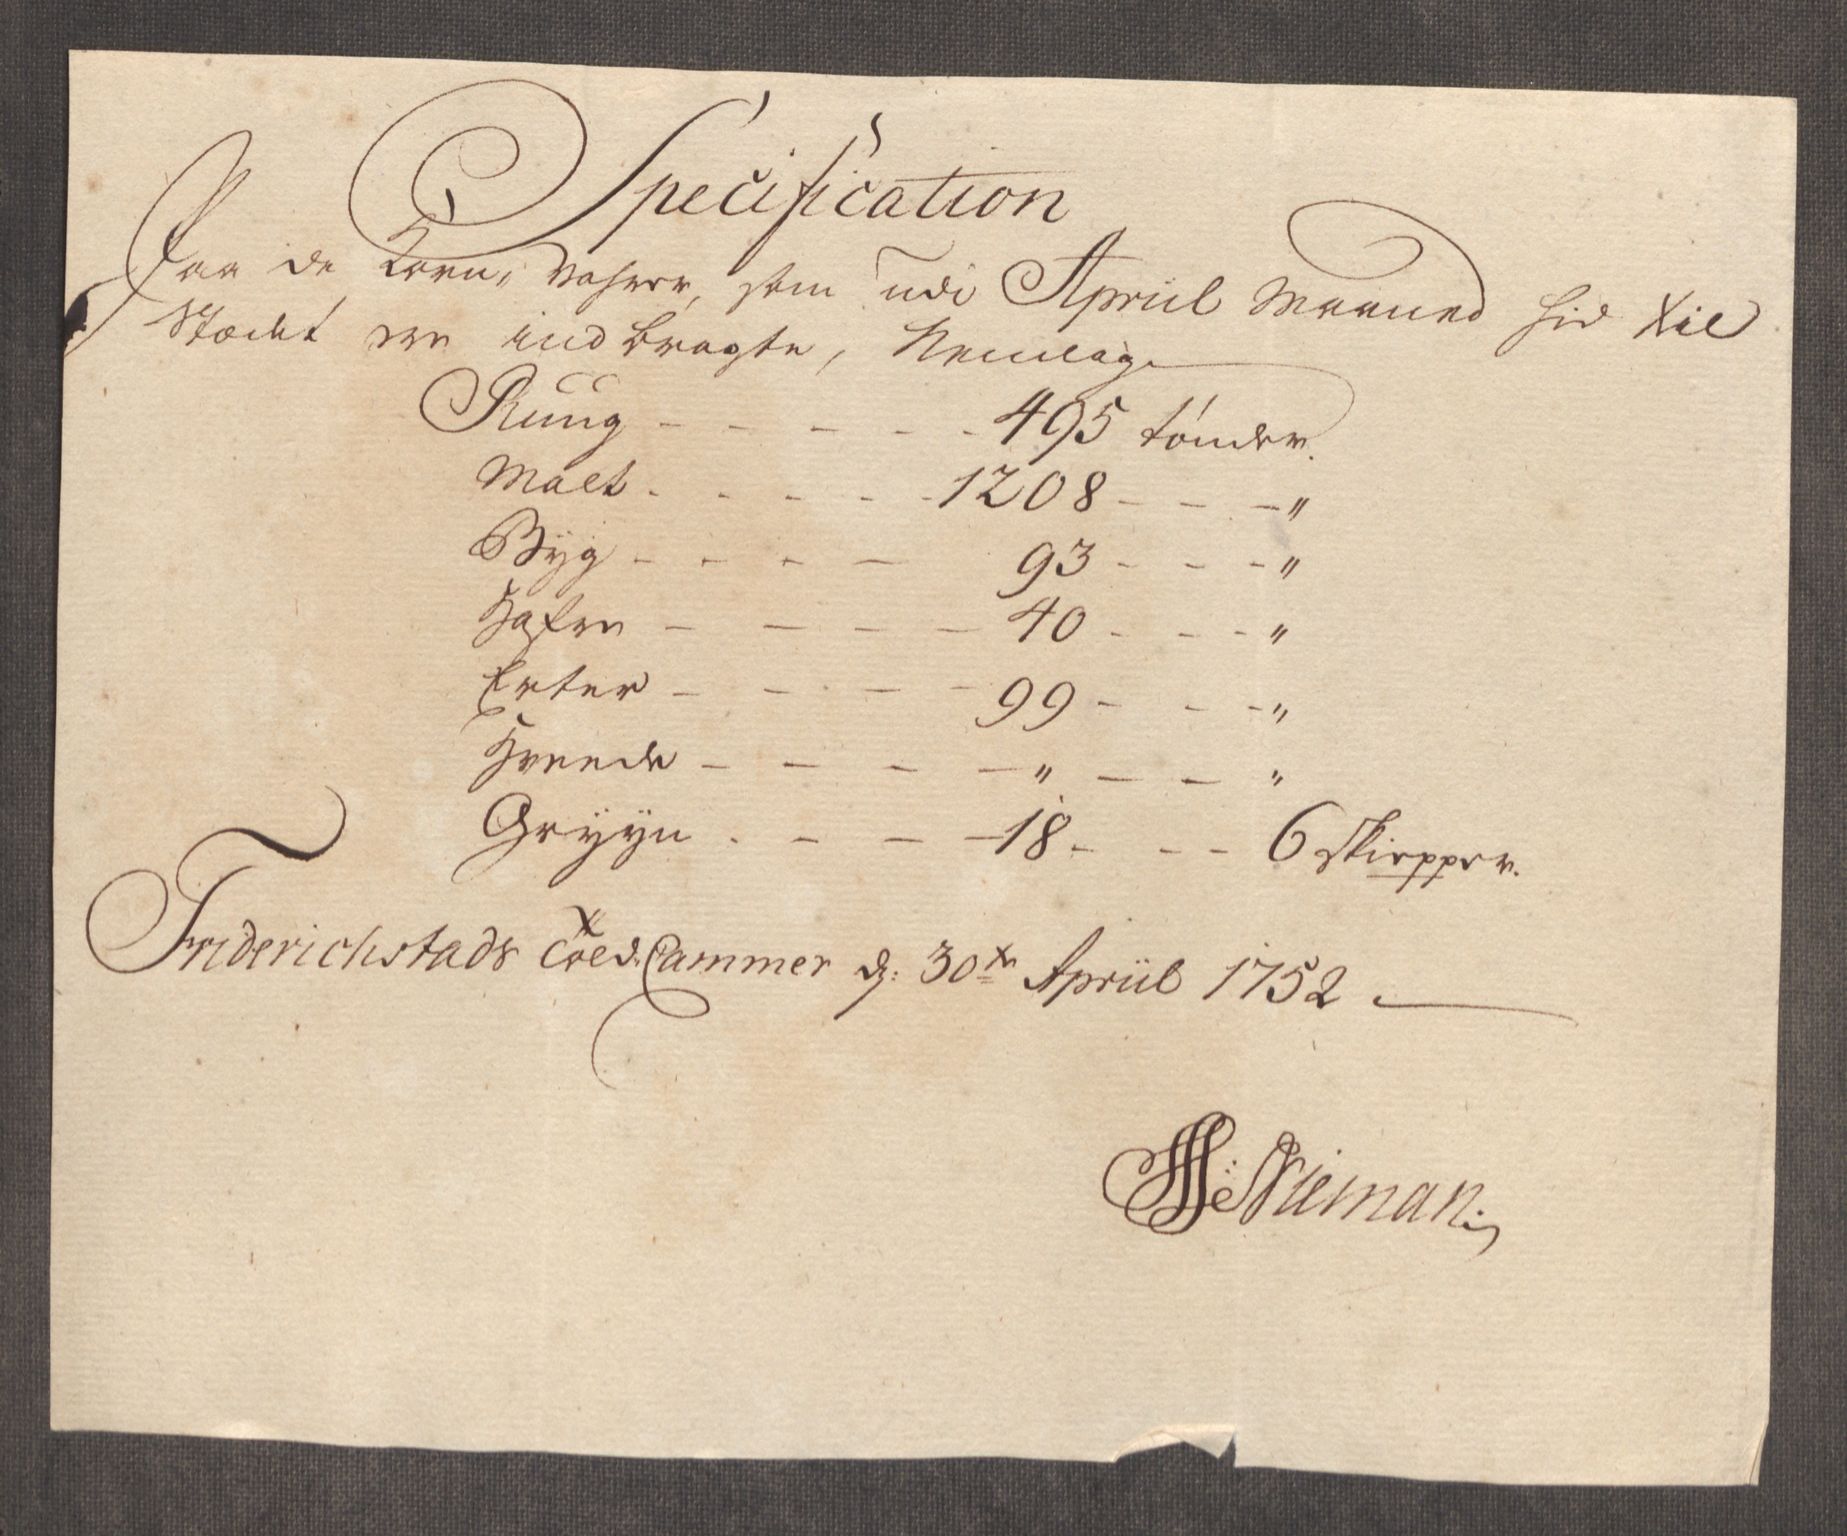 Specification
Paa de Korn, Vahrer, som udi Apriil Maaned hid til
Stædet ere indbragte, Nemlig
Ruug - - - - - 495 tønder.
Malt - - - - - 1208 - - - "
Byg - - - - 93 - - - "
Hafre - - - - 40 - - - "
Erter - - - - 99 - - - "
Hveede - - - - " - - "
Gryyn - - - - 18 - - - 6 Skiepper.
Friderichstads Told Cammer d: 30te Apriil 1752
Nieman